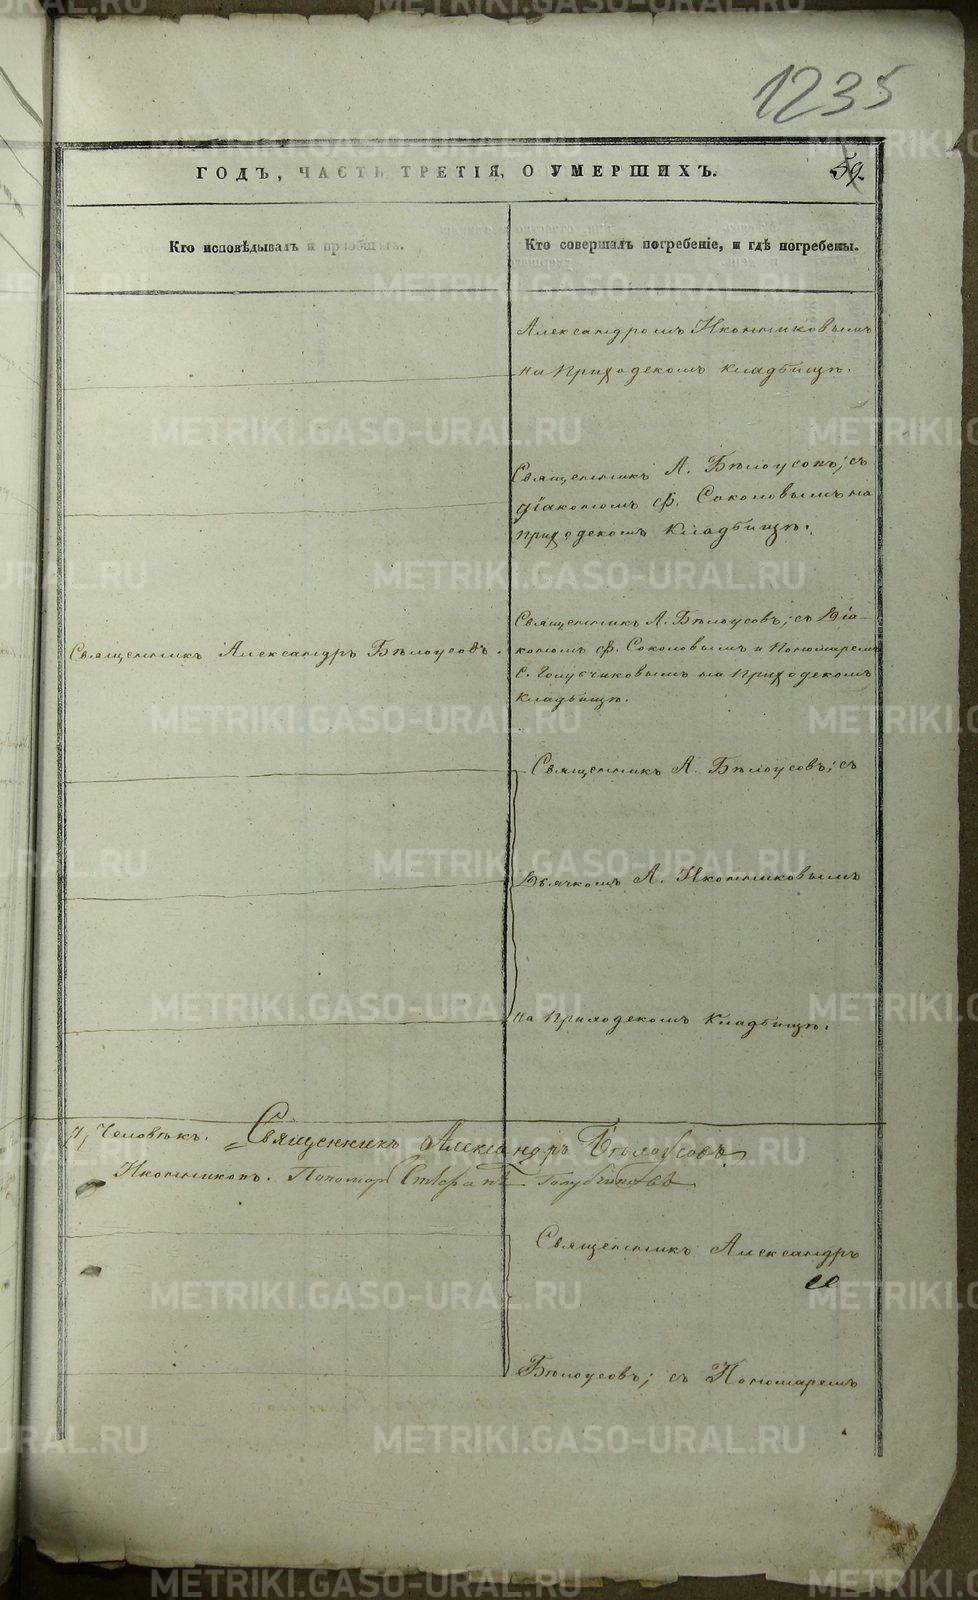 1235
ГОДЪ, ЧАСТЬ ТРЕТІЯ, О УМЕРШИХЪ.
59.
Кто исповѣдывалъ и пріобщалъ.
Кто совершалъ погребеніе, и гдѣ погребены.
Александромъ Иконниковымъ
на Приходскомъ кладбищѣ.
Священникъ А. Бѣлоусовъ; съ
діакономъ Ф. Соколовымъ на
приходскомъ кладбищѣ.
Священникъ Александръ Бѣлоусовъ.
Священникъ А. Бѣлоусовъ; съ Діа-
кономъ Ф. Соколовымъ и Пономаремъ
С. Голубчиковымъ на Приходскомъ
кладбищѣ.
Священникъ А. Бѣлоусовъ; съ
Дьячкомъ А. Иконниковымъ
на Приходскомъ Кладбищѣ.
Человѣкъ. Священникъ Александръ Бѣлоусовъ
Иконниковъ. Пономарь Стефанъ Голубчиковъ
Священникъ Александръ
Бѣлоусовъ; съ Пономаремъ
METRIKI.GASO-URAL.RU